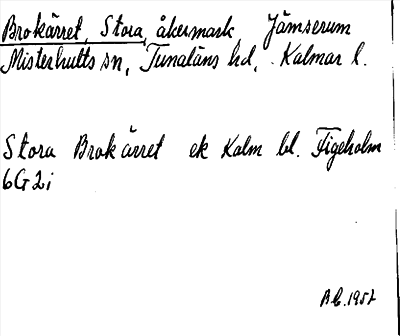 Brokärret, Stora, åkermark Jämserum
Misterhults sn, Tunaläns hd, Kalmar l.
Stora Brokärret ek Kalm bl. Figeholm
6G2i
A.C. 1957